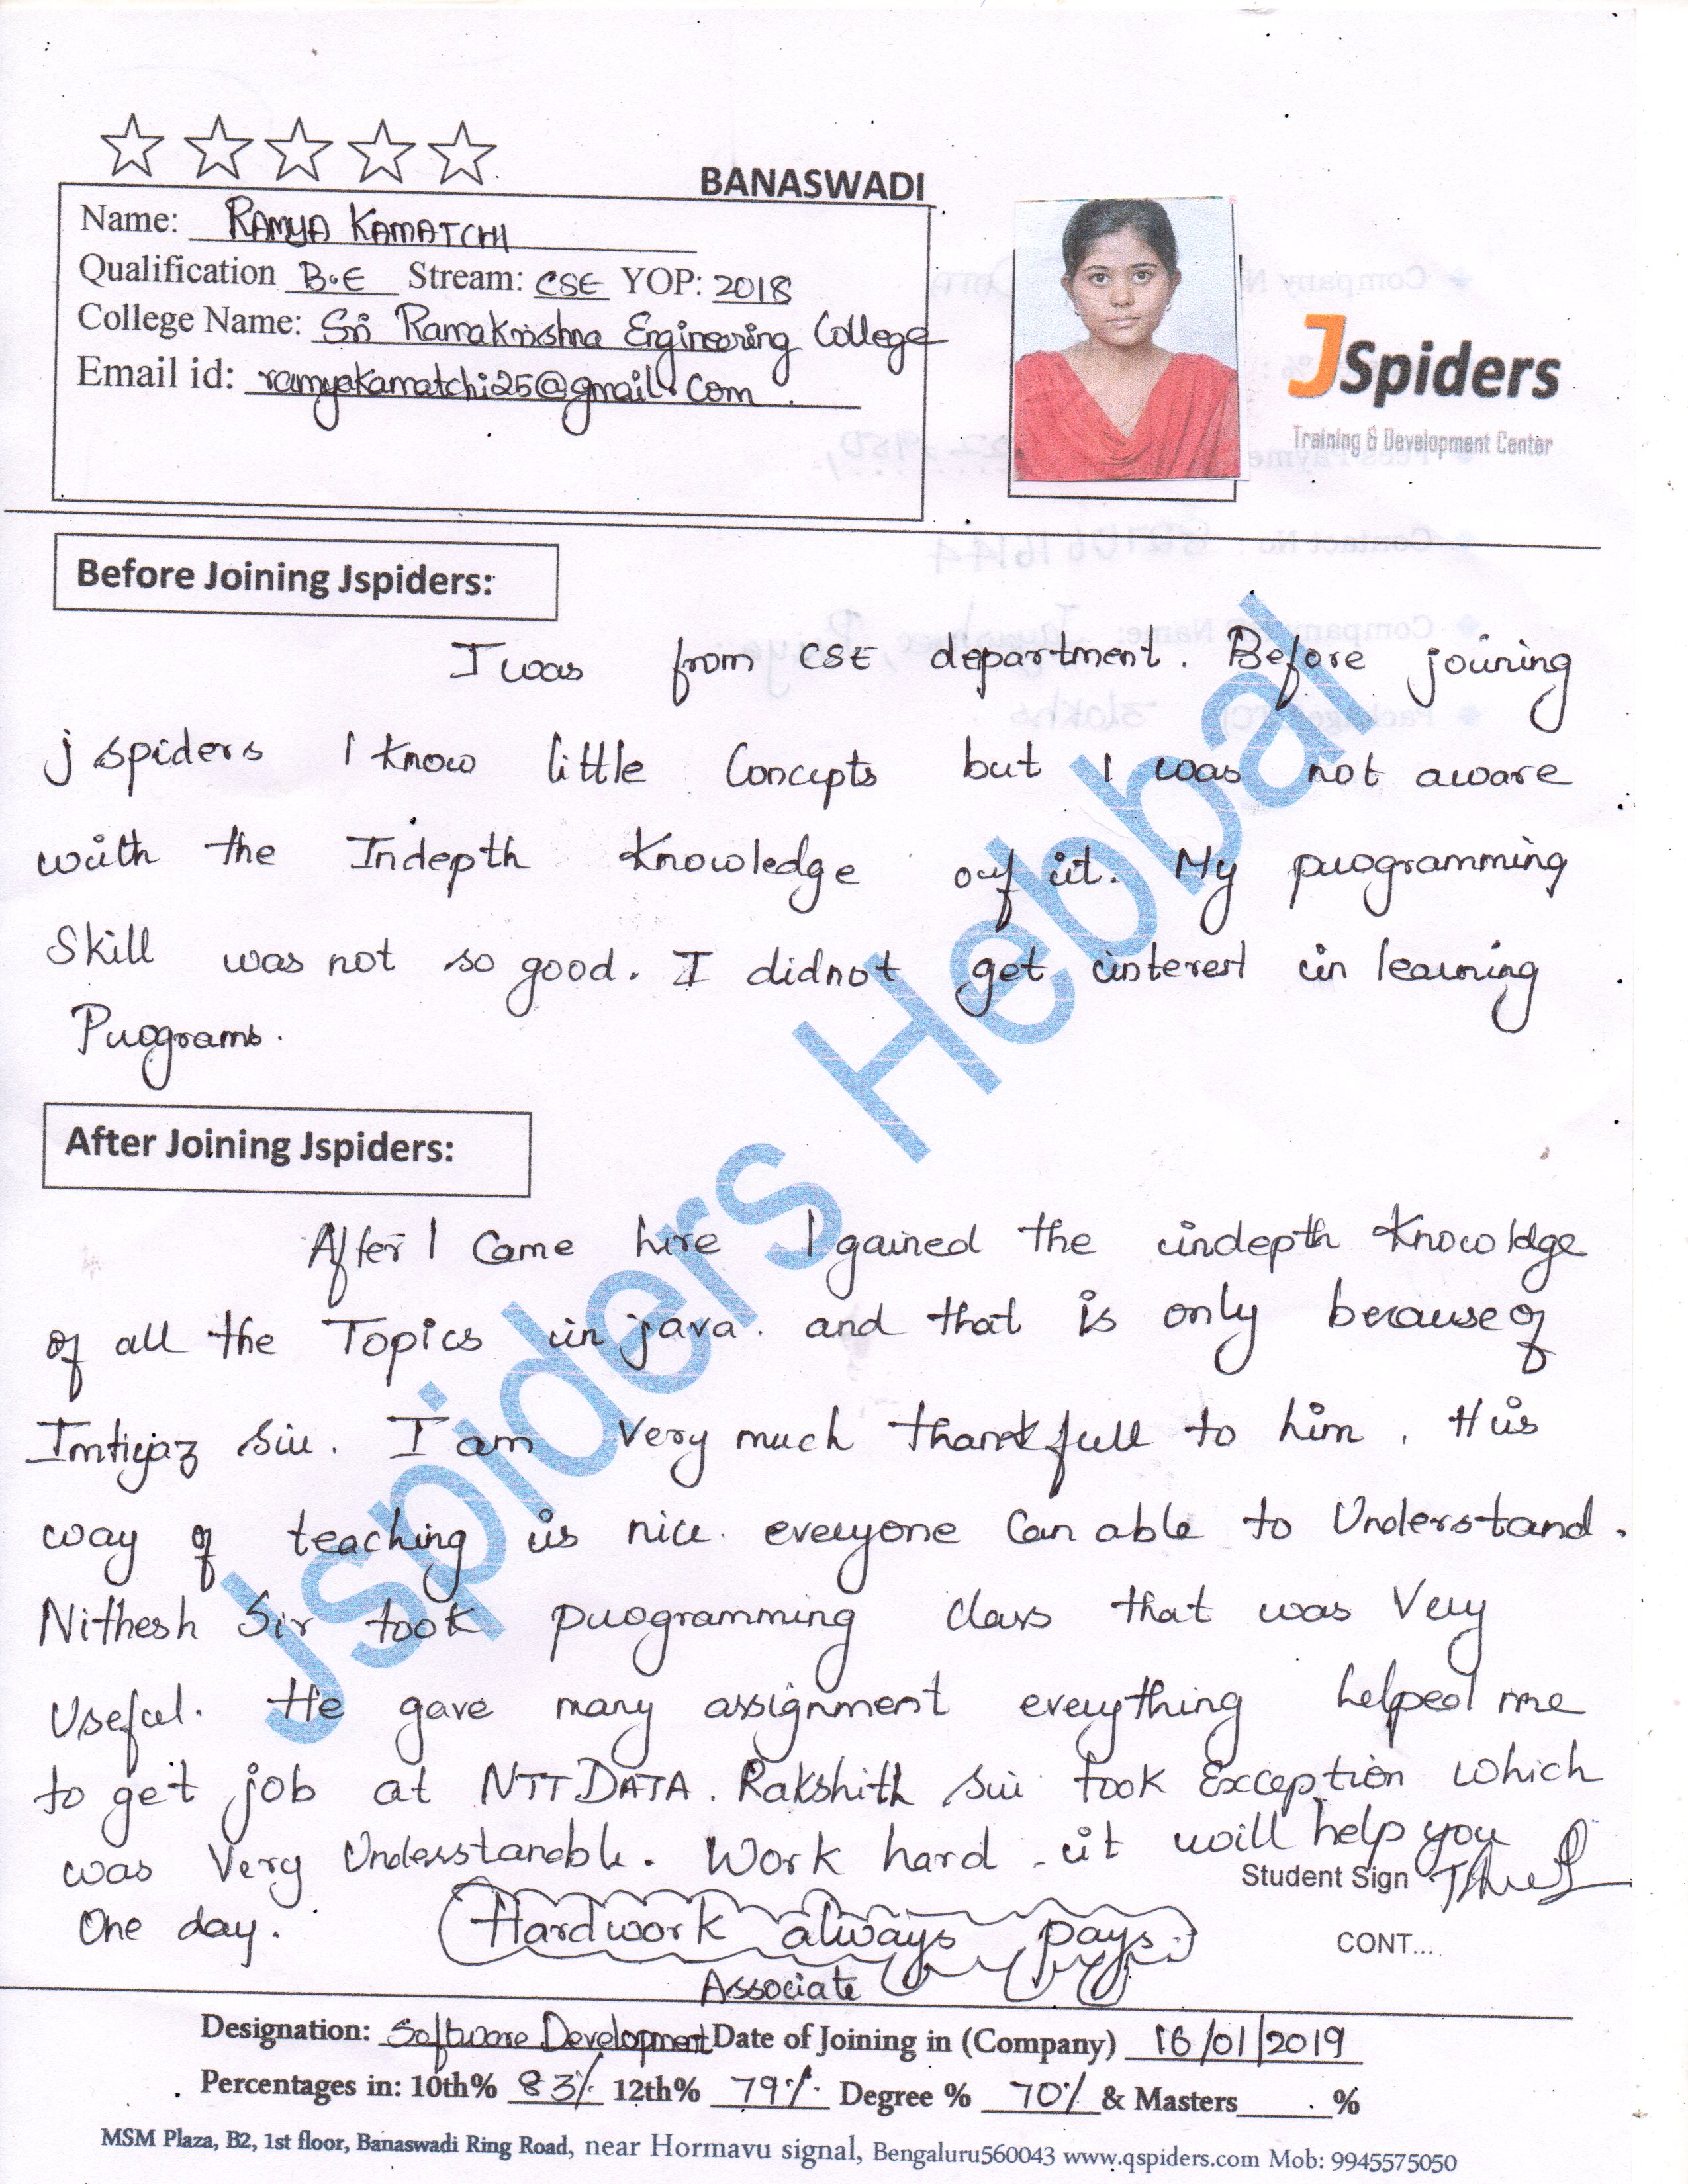 BANASWADI
Name: RAMYA KAMATCHI
Qualification B.E Stream: CSE YOP: 2018
College Name: Sri Ramakrishna Engineering College
Email id: ramyakamatchi25@gmail.com
JSpiders
Training & Development Center
Before Joining Jspiders:
I was from CSE department. Before joining
jspiders I know little concepts but I was not aware
with the Indepth knowledge of it. My programming
Skill was not so good. I didnot get interest in learning
Programs.
After Joining Jspiders:
After I came here I gained the indepth knowledge
of all the Topics in java. and that is only because of
Imtiyaz sir. I am very much thankfull to him. His
way of teaching is nice. everyone can able to Understand.
Nithesh Sir took programming class that was Very
Useful. He gave many assignment everything helped me
to get job at NTT DATA. Rakshith sir took Exception which
was Very Understandble. Work hard it will help you
One day.
Student Sign
Hardwork always pays.
CONT...
Associate
Designation: Software Development Date of Joining in (Company) 16/01/2019
Percentages in: 10th% 83% 12th% 79% Degree % 70% & Masters %
MSM Plaza, B2, 1st floor, Banaswadi Ring Road, near Hormavu signal, Bengaluru560043 www.qspiders.com Mob: 9945575050
Jspiders Hebbal